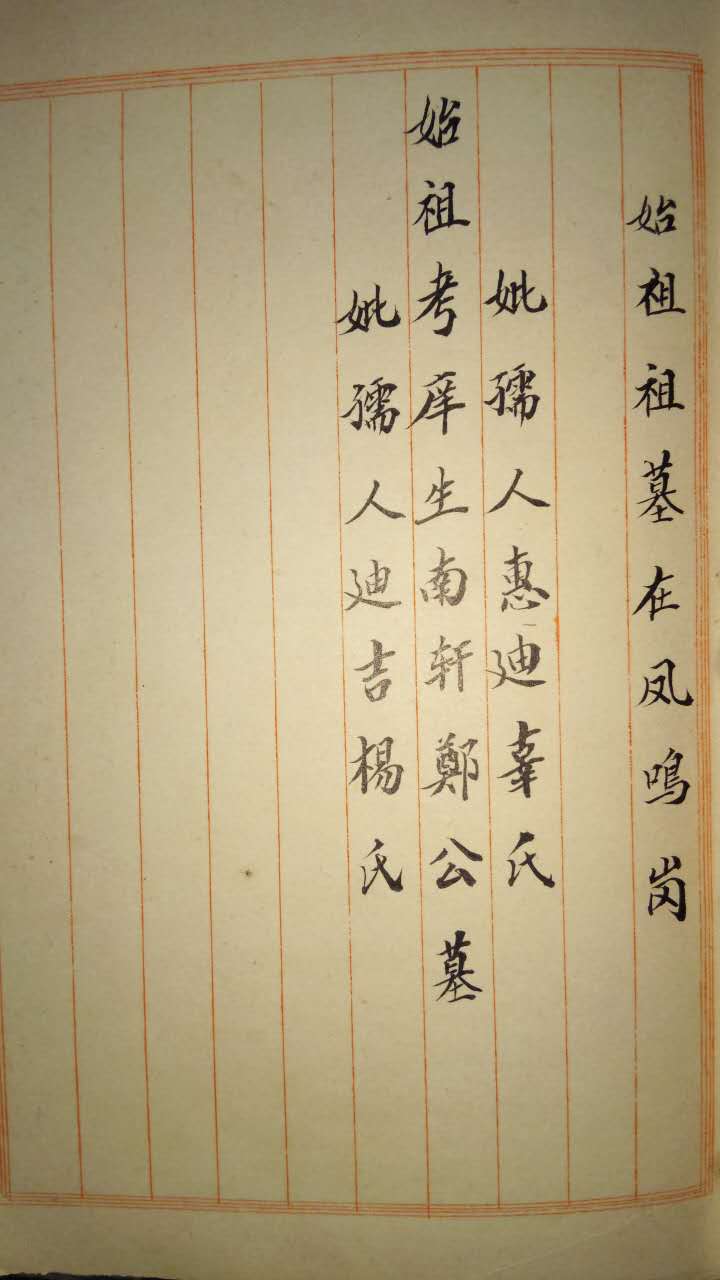 始祖祖墓在凤鸣岗
妣孺人惠迪辜氏
始祖考庠生南轩鄭公墓
妣孺人迪吉楊氏